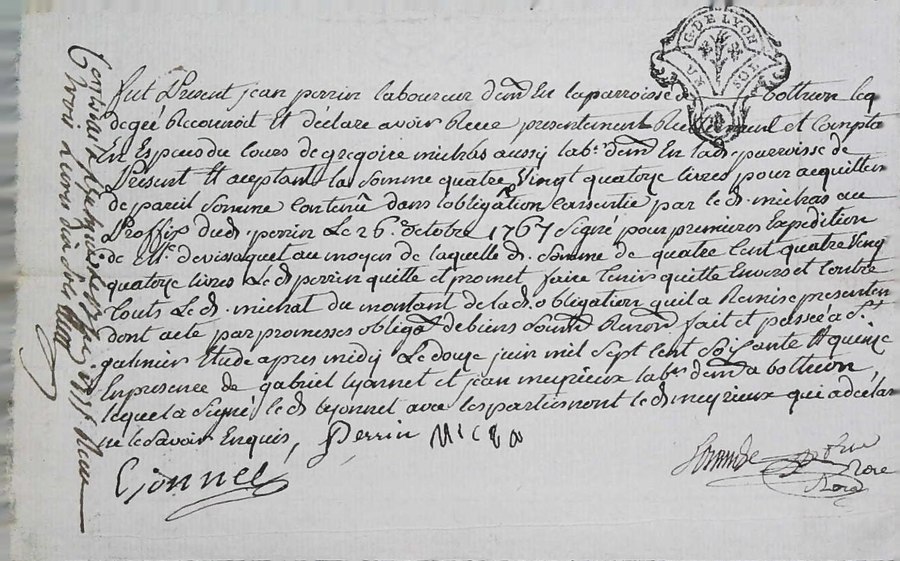 G. DE LYON
SOL
fut Present jean perrin laboureur dem.t En laparroisse de bothéon leq
degré Reconnoit Et déclare avoir Receu presentement Reellement et Compta
En Espèces du Cours de gregoire michas aussy lab.r dem.t En lad. parroisse de
Present Et aceptant la somme quatre Vingt quatorze livres pour acquitter
de pareil Somme Contenüe dans l'obligãon Consentie par led. michas au
Proffis dud. perrin Le 26 octobre 1767 Signé pour premiere Expedition
de M.e devissaquet au moyen de laquelle d. Somme de quatre Cent quatre Ving
quatorze livres Led. perrin quitte et promet faire tenir quitte Envers et Contre
touts Le d. michat du montant de lad. obligation quil a Remise presentem
dont acte par promesses obligaõn debiens Soumõn Renõn fait et passé a S.t
galmier Etude apres midy Le douze juin mil Sept Cent Soixante Et quinze
Enpresence de gabriel Lyonnet et jean meyrieux lab.rs dem.t a bothéon,
lequel a Signé led. Lyonnet avec les parties non led. meyrieux qui a déclar
ne le savoir Enquis, Perrin Micha
Lionnet
Controllé a S.t galmier 1775 Receu
trois livres dix sols